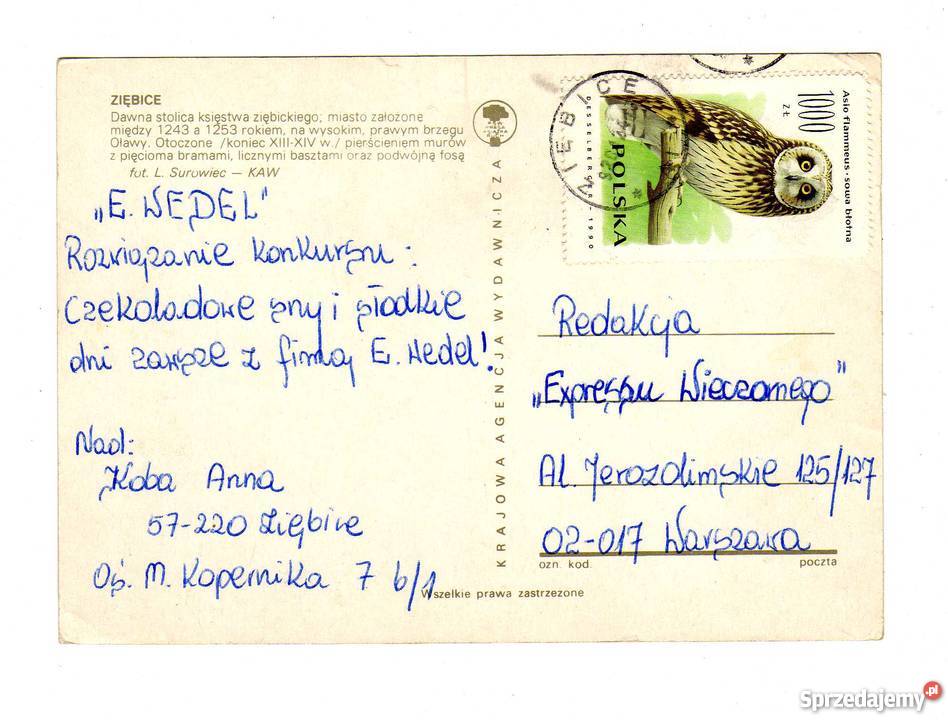 ZIĘBICE
Dawna stolica księstwa ziębickiego; miasto założone
między 1243 a 1253 rokiem, na wysokim, prawym brzegu
Oławy. Otoczone /koniec XIII-XIV w./ pierścieniem murów
z pięcioma bramami, licznymi basztami oraz podwójną fosą
fot. L. Surowiec — KAW
„E. WEDEL"
Rozwiązanie konkursu:
Czekoladowe sny i słodkie
dni zawsze z firmą E. Wedel!
Nad:
Koba Anna
57-220 Ziębice
Oś. M. Kopernika 7 b/1
KRAJOWA AGENCJA WYDAWNICZA
Wszelkie prawa zastrzezone
ZIĘBICE
POLSKA
1000
ZŁ
Asio flammeus · sowa błotna
Redakcja
„Expressu Wieczornego"
Al. Jerozolimskie 125/127
02-017 Warszawa
ozn. kod. poczta
Sprzedajemy.pl